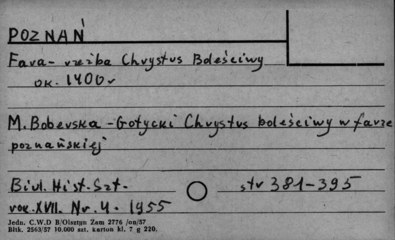 POZNAŃ
Fara - rzeźba Chrystus Boleściwy
ok. 1400 r
M. Boberska - Gotycki Chrystus boleściwy w farze
poznańskiej
Biul. Hist. Szt. - str 381-395
rok. XVII. Nr. 4. 1955
Jedn. C.W.D B/Olsztyn Zam 2776 /on/57
Bltk. 2563/57 10.000 szt. karton kl. 7 g 220.